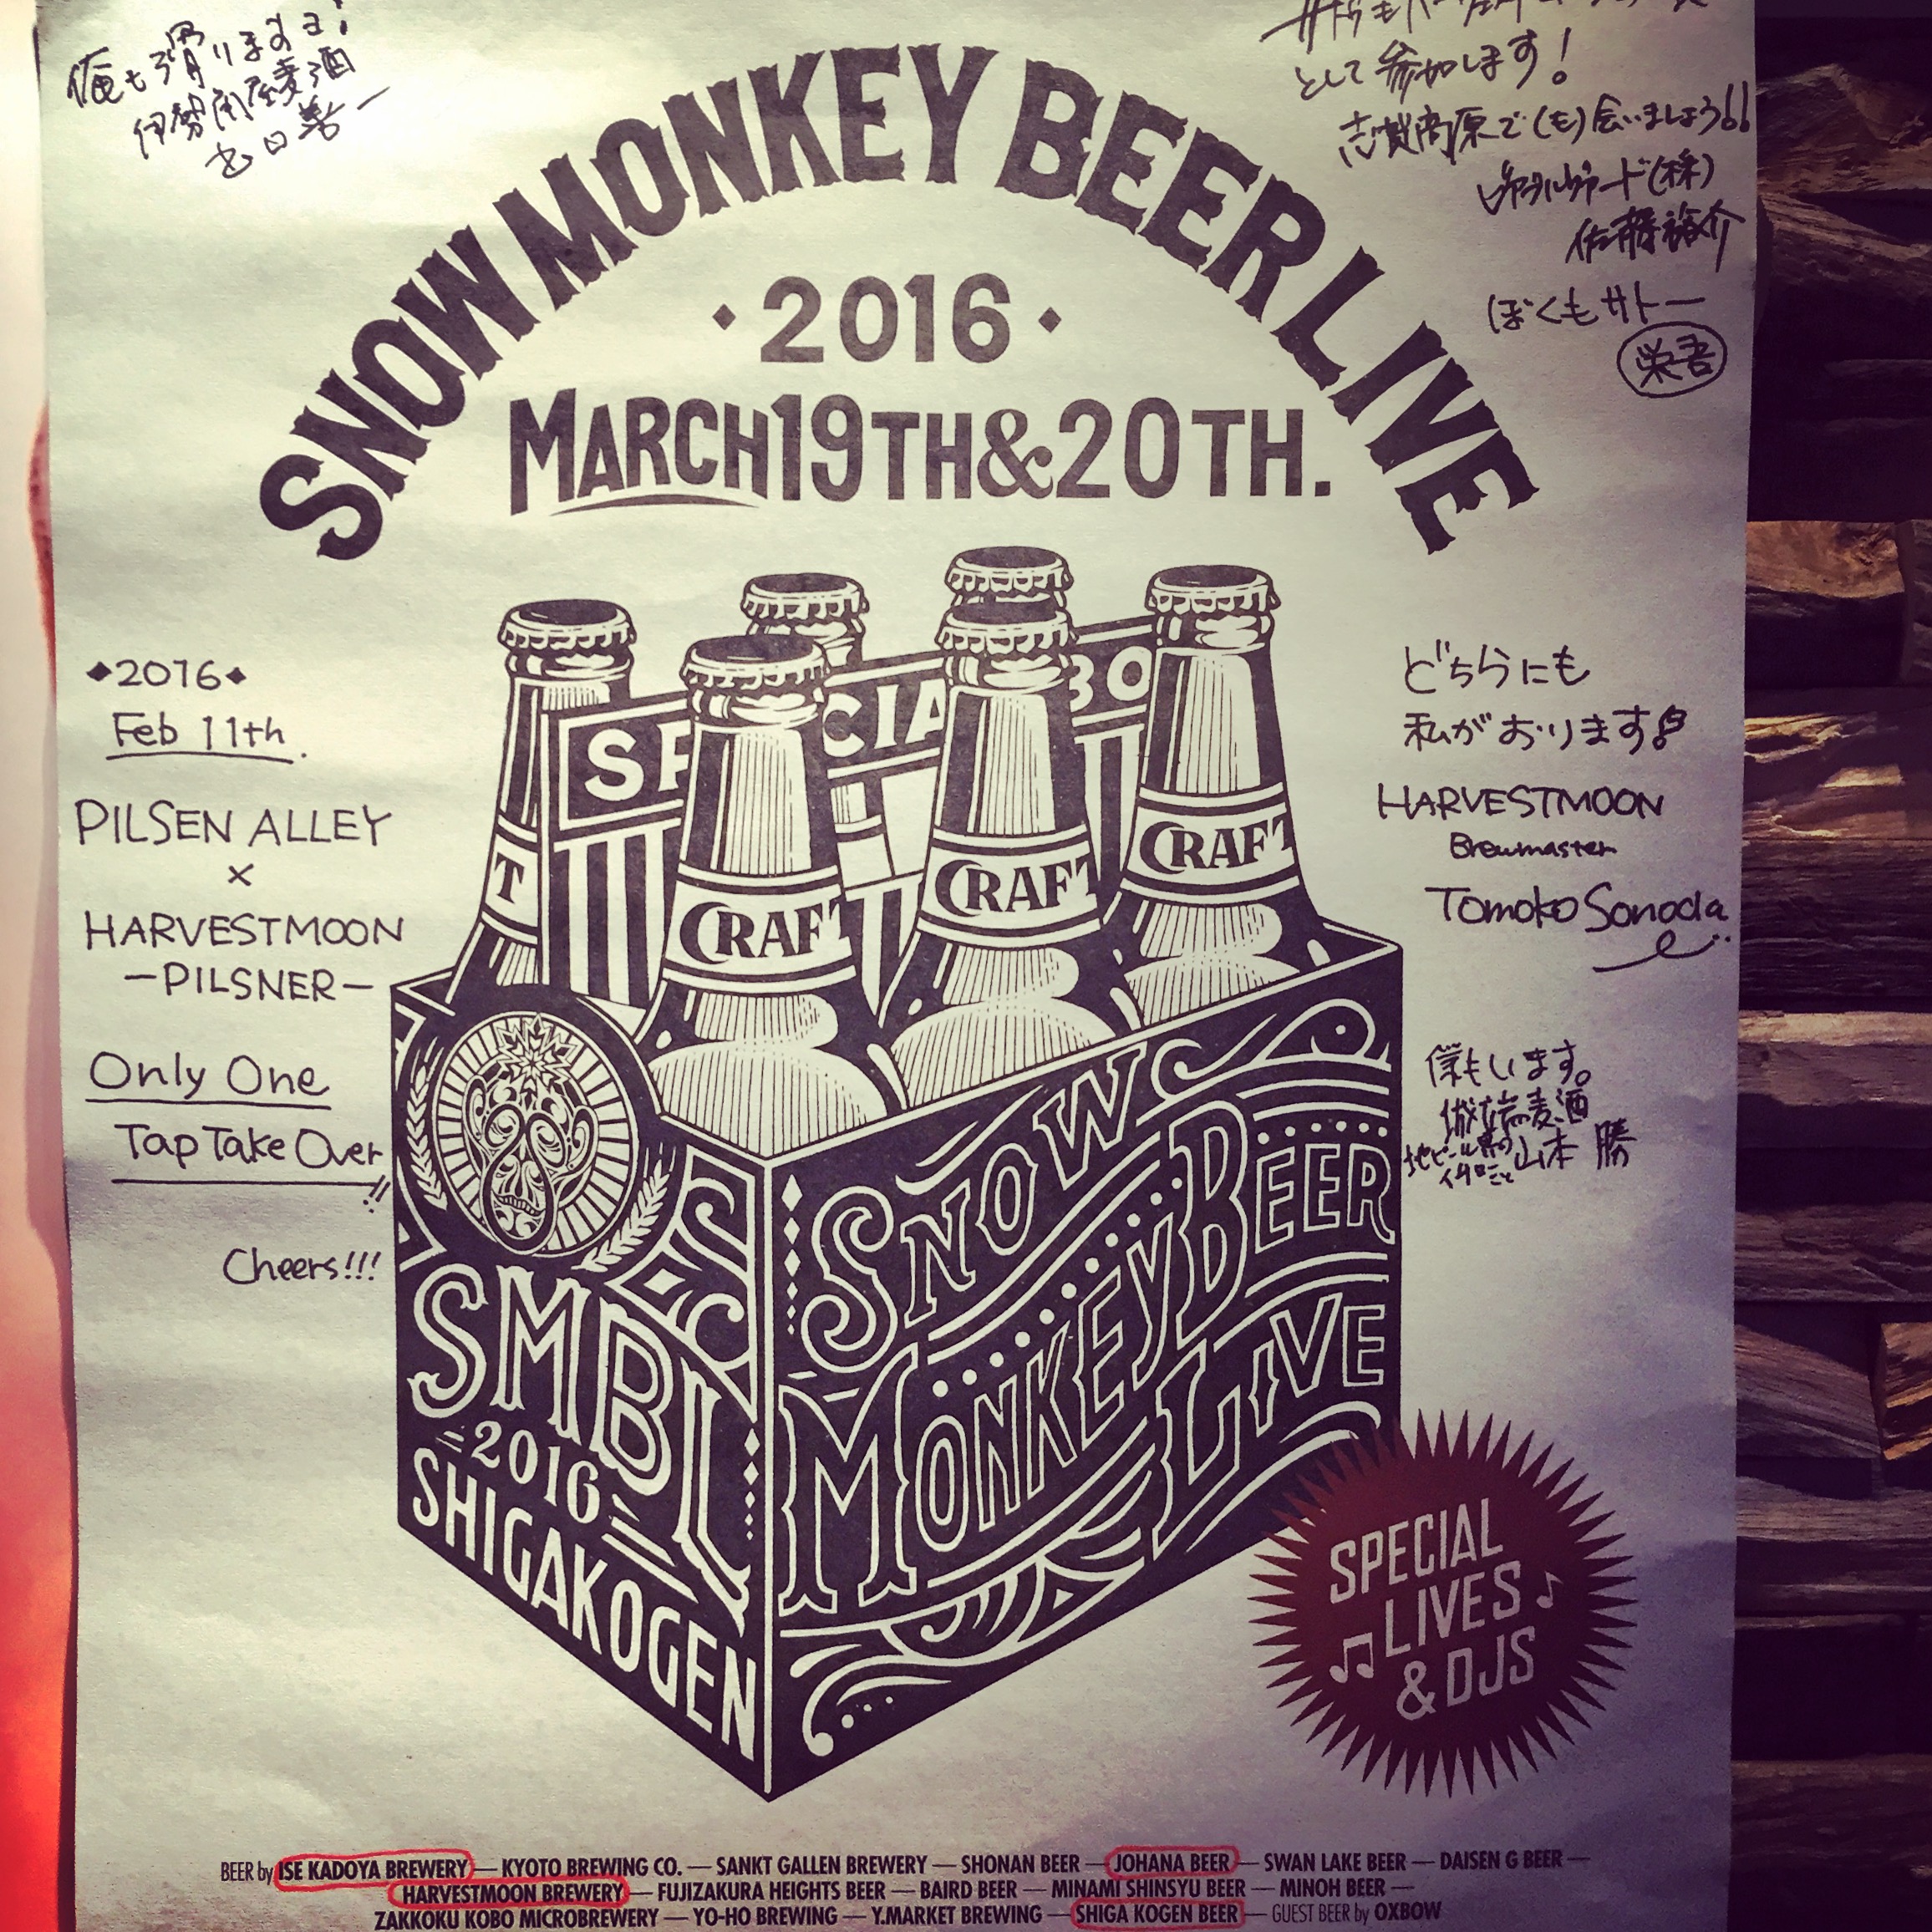 俺も滑ります!
伊勢角屋麦酒
として参加します!
志賀高原で(も)会いましょう!!
(株)
佐藤裕介
ぼくもサトー
栄吾
SNOW MONKEY BEER LIVE
・2016・
MARCH 19TH & 20TH.
◆2016◆
Feb 11th.
PILSEN ALLEY
×
HARVESTMOON
—PILSNER—
Only One
Tap Take Over!!
Cheers!!!
どちらにも
私がおります!
HARVESTMOON
Brewmaster
Tomoko Sonoda
僕もいます。
城端麦酒
山本 勝
SPECIA BO
T CRAFT CRAFT CRAFT
SNOW
MONKEY BEER
LIVE
SMBL
-2016-
SHIGAKOGEN
SPECIAL
LIVES
& DJS
BEER by ISE KADOYA BREWERY — KYOTO BREWING CO. — SANKT GALLEN BREWERY — SHONAN BEER — JOHANA BEER — SWAN LAKE BEER — DAISEN G BEER —
HARVESTMOON BREWERY — FUJIZAKURA HEIGHTS BEER — BAIRD BEER — MINAMI SHINSYU BEER — MINOH BEER —
ZAKKOKU KOBO MICROBREWERY — YO-HO BREWING — Y.MARKET BREWING — SHIGA KOGEN BEER — GUEST BEER by OXBOW